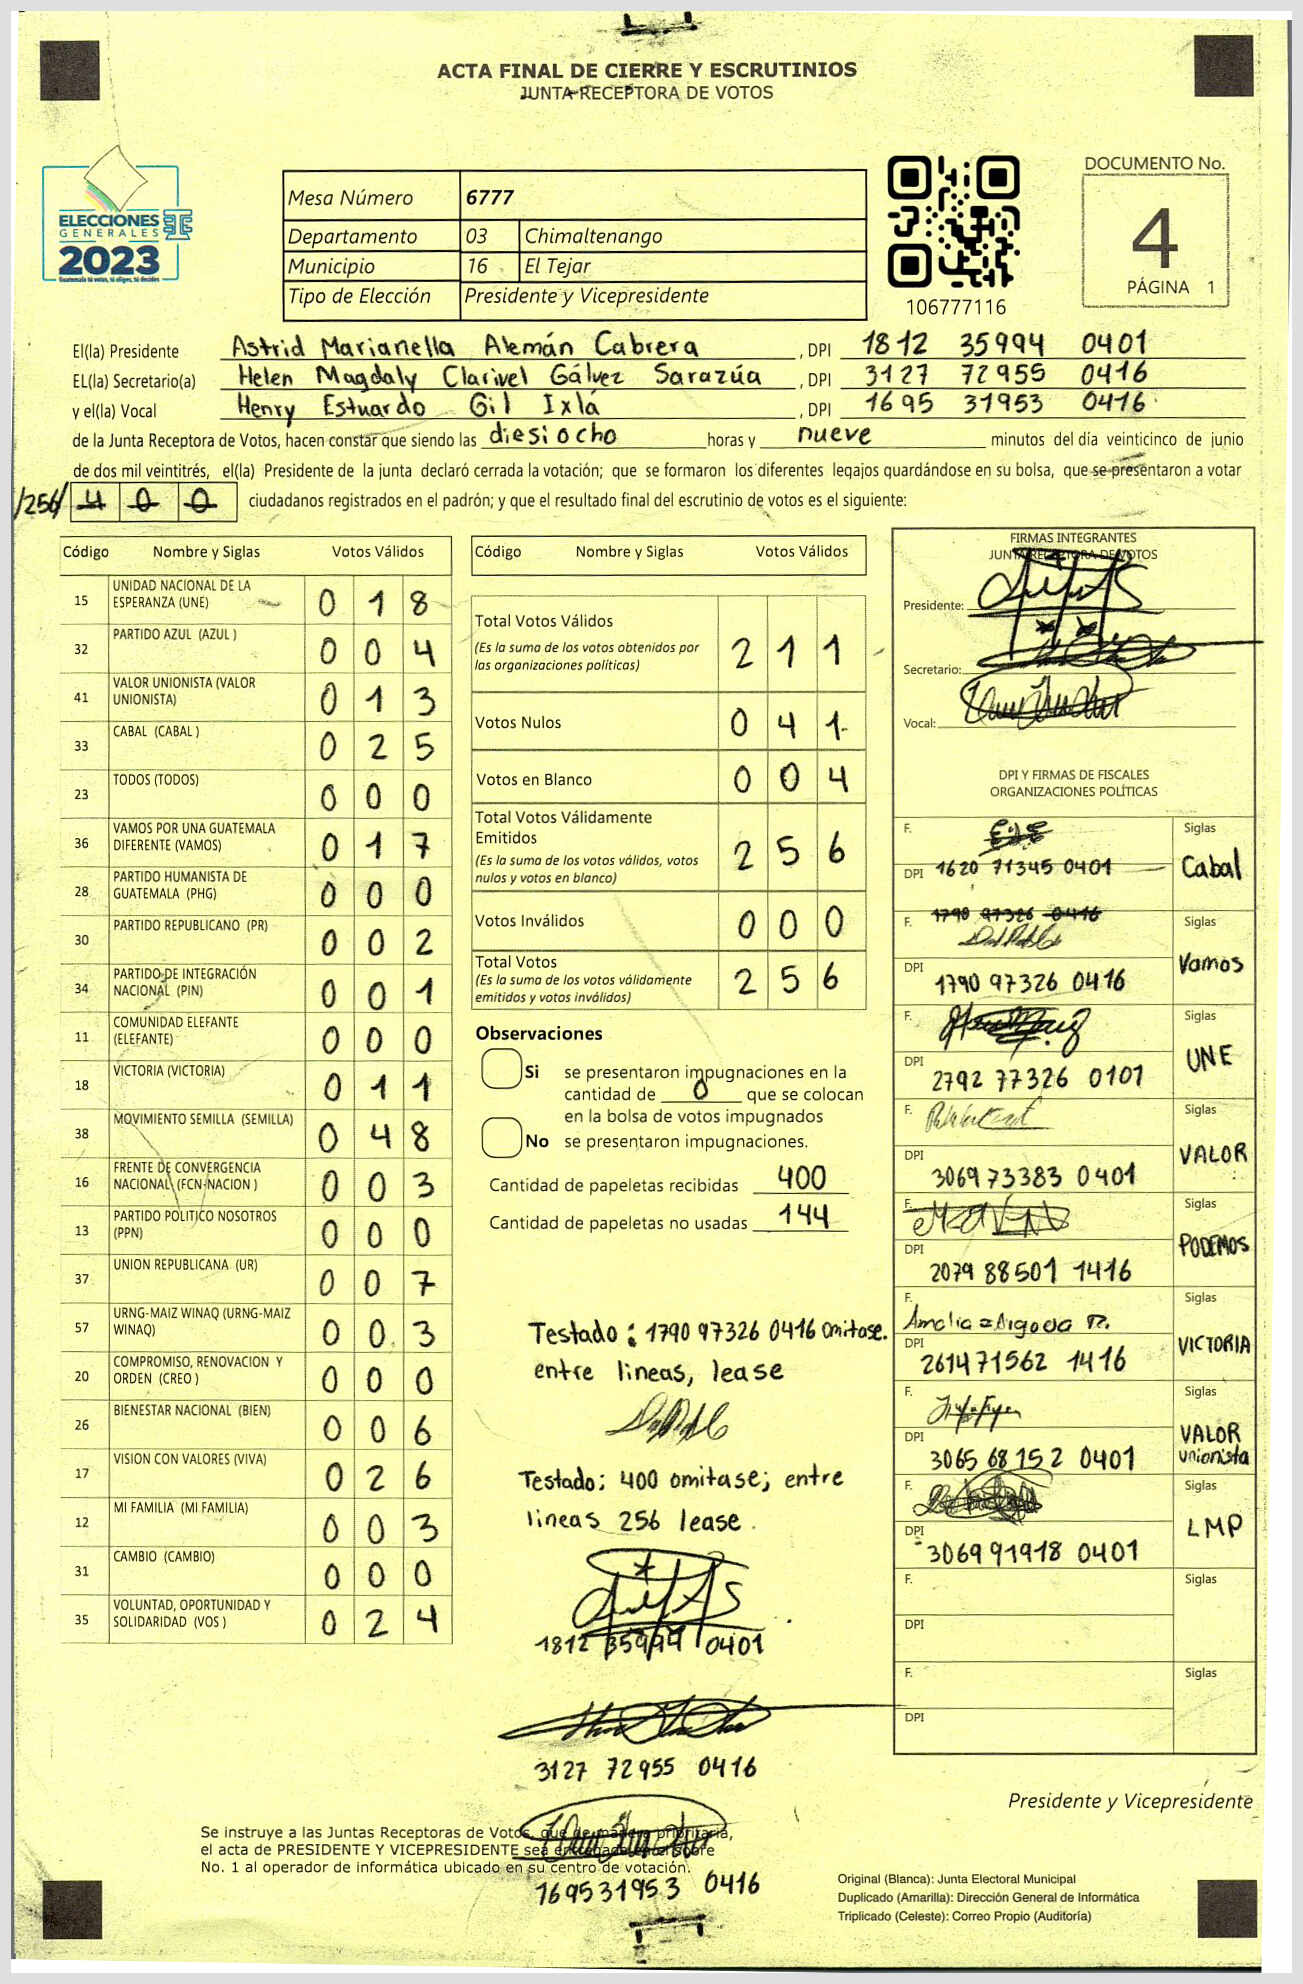 ACTA FINAL DE CIERRE Y ESCRUTINIOS
JUNTA RECEPTORA DE VOTOS
ELECCIONES
GENERALES
2023
Guatemala tú votas, tú eliges, tú decides
Mesa Número 6777
Departamento 03 Chimaltenango
Municipio 16 El Tejar
Tipo de Elección Presidente y Vicepresidente
106777116
DOCUMENTO No.
4
PÁGINA 1
El(la) Presidente Astrid Marianella Alemán Cabrera, DPI 1812 35994 0401
EL(la) Secretario(a) Helen Magdaly Clarivel Gálvez Sarazúa, DPI 3127 72955 0416
y el(la) Vocal Henry Estuardo Gil Ixlá, DPI 1695 31953 0416
de la Junta Receptora de Votos, hacen constar que siendo las diesiocho horas y nueve minutos del día veinticinco de junio
de dos mil veintitrés, el(la) Presidente de la junta declaró cerrada la votación; que se formaron los diferentes legajos quardándose en su bolsa, que se presentaron a votar
/256/ 4 0 0 ciudadanos registrados en el padrón; y que el resultado final del escrutinio de votos es el siguiente:
Código Nombre y Siglas Votos Válidos
15 UNIDAD NACIONAL DE LA ESPERANZA (UNE) 0 1 8
32 PARTIDO AZUL (AZUL ) 0 0 4
41 VALOR UNIONISTA (VALOR UNIONISTA) 0 1 3
33 CABAL (CABAL ) 0 2 5
23 TODOS (TODOS) 0 0 0
36 VAMOS POR UNA GUATEMALA DIFERENTE (VAMOS) 0 1 7
28 PARTIDO HUMANISTA DE GUATEMALA (PHG) 0 0 0
30 PARTIDO REPUBLICANO (PR) 0 0 2
34 PARTIDO DE INTEGRACIÓN NACIONAL (PIN) 0 0 1
11 COMUNIDAD ELEFANTE (ELEFANTE) 0 0 0
18 VICTORIA (VICTORIA) 0 1 1
38 MOVIMIENTO SEMILLA (SEMILLA) 0 4 8
16 FRENTE DE CONVERGENCIA NACIONAL (FCN-NACION ) 0 0 3
13 PARTIDO POLITICO NOSOTROS (PPN) 0 0 0
37 UNION REPUBLICANA (UR) 0 0 7
57 URNG-MAIZ WINAQ (URNG-MAIZ WINAQ) 0 0 3
20 COMPROMISO, RENOVACION Y ORDEN (CREO ) 0 0 0
26 BIENESTAR NACIONAL (BIEN) 0 0 6
17 VISION CON VALORES (VIVA) 0 2 6
12 MI FAMILIA (MI FAMILIA) 0 0 3
31 CAMBIO (CAMBIO) 0 0 0
35 VOLUNTAD, OPORTUNIDAD Y SOLIDARIDAD (VOS ) 0 2 4
Código Nombre y Siglas Votos Válidos
Total Votos Válidos 2 1 1
(Es la suma de los votos obtenidos por
las organizaciones políticas)
Votos Nulos 0 4 1
Votos en Blanco 0 0 4
Total Votos Válidamente
Emitidos 2 5 6
(Es la suma de los votos válidos, votos
nulos y votos en blanco)
Votos Inválidos 0 0 0
Total Votos 2 5 6
(Es la suma de los votos válidamente
emitidos y votos inválidos)
Observaciones
Si se presentaron impugnaciones en la
cantidad de 0 que se colocan
en la bolsa de votos impugnados
No se presentaron impugnaciones.
Cantidad de papeletas recibidas 400
Cantidad de papeletas no usadas 144
Testado: 1790 97326 0416 omitase.
entre lineas, lease
Testado; 400 omitase; entre
lineas 256 lease.
1812 35994 0401
3127 72955 0416
169531953 0416
FIRMAS INTEGRANTES
JUNTA RECEPTORA DE VOTOS
Presidente:
Secretario:
Vocal:
DPI Y FIRMAS DE FISCALES
ORGANIZACIONES POLÍTICAS
F. Siglas
DPI 1620 71345 0401 Cabal
F. 1790 97326 0416 Siglas
DPI 1790 97326 0416 Vamos
F. Siglas
DPI 2792 77326 0101 UNE
F. Siglas
DPI 3069 73383 0401 VALOR
F. Siglas
DPI 2079 88501 1416 PODEMOS
F. Amalia Siglas
DPI 2614 71562 1416 VICTORIA
F. Siglas
DPI 3065 68152 0401 VALOR unionista
F. Siglas
DPI 3069 91918 0401 LMP
F. Siglas
DPI
F. Siglas
DPI
Presidente y Vicepresidente
Se instruye a las Juntas Receptoras de Votos, que de manera prioritaria,
el acta de PRESIDENTE Y VICEPRESIDENTE sea entregada en el sobre
No. 1 al operador de informática ubicado en su centro de votación.
Original (Blanca): Junta Electoral Municipal
Duplicado (Amarilla): Dirección General de Informática
Triplicado (Celeste): Correo Propio (Auditoría)